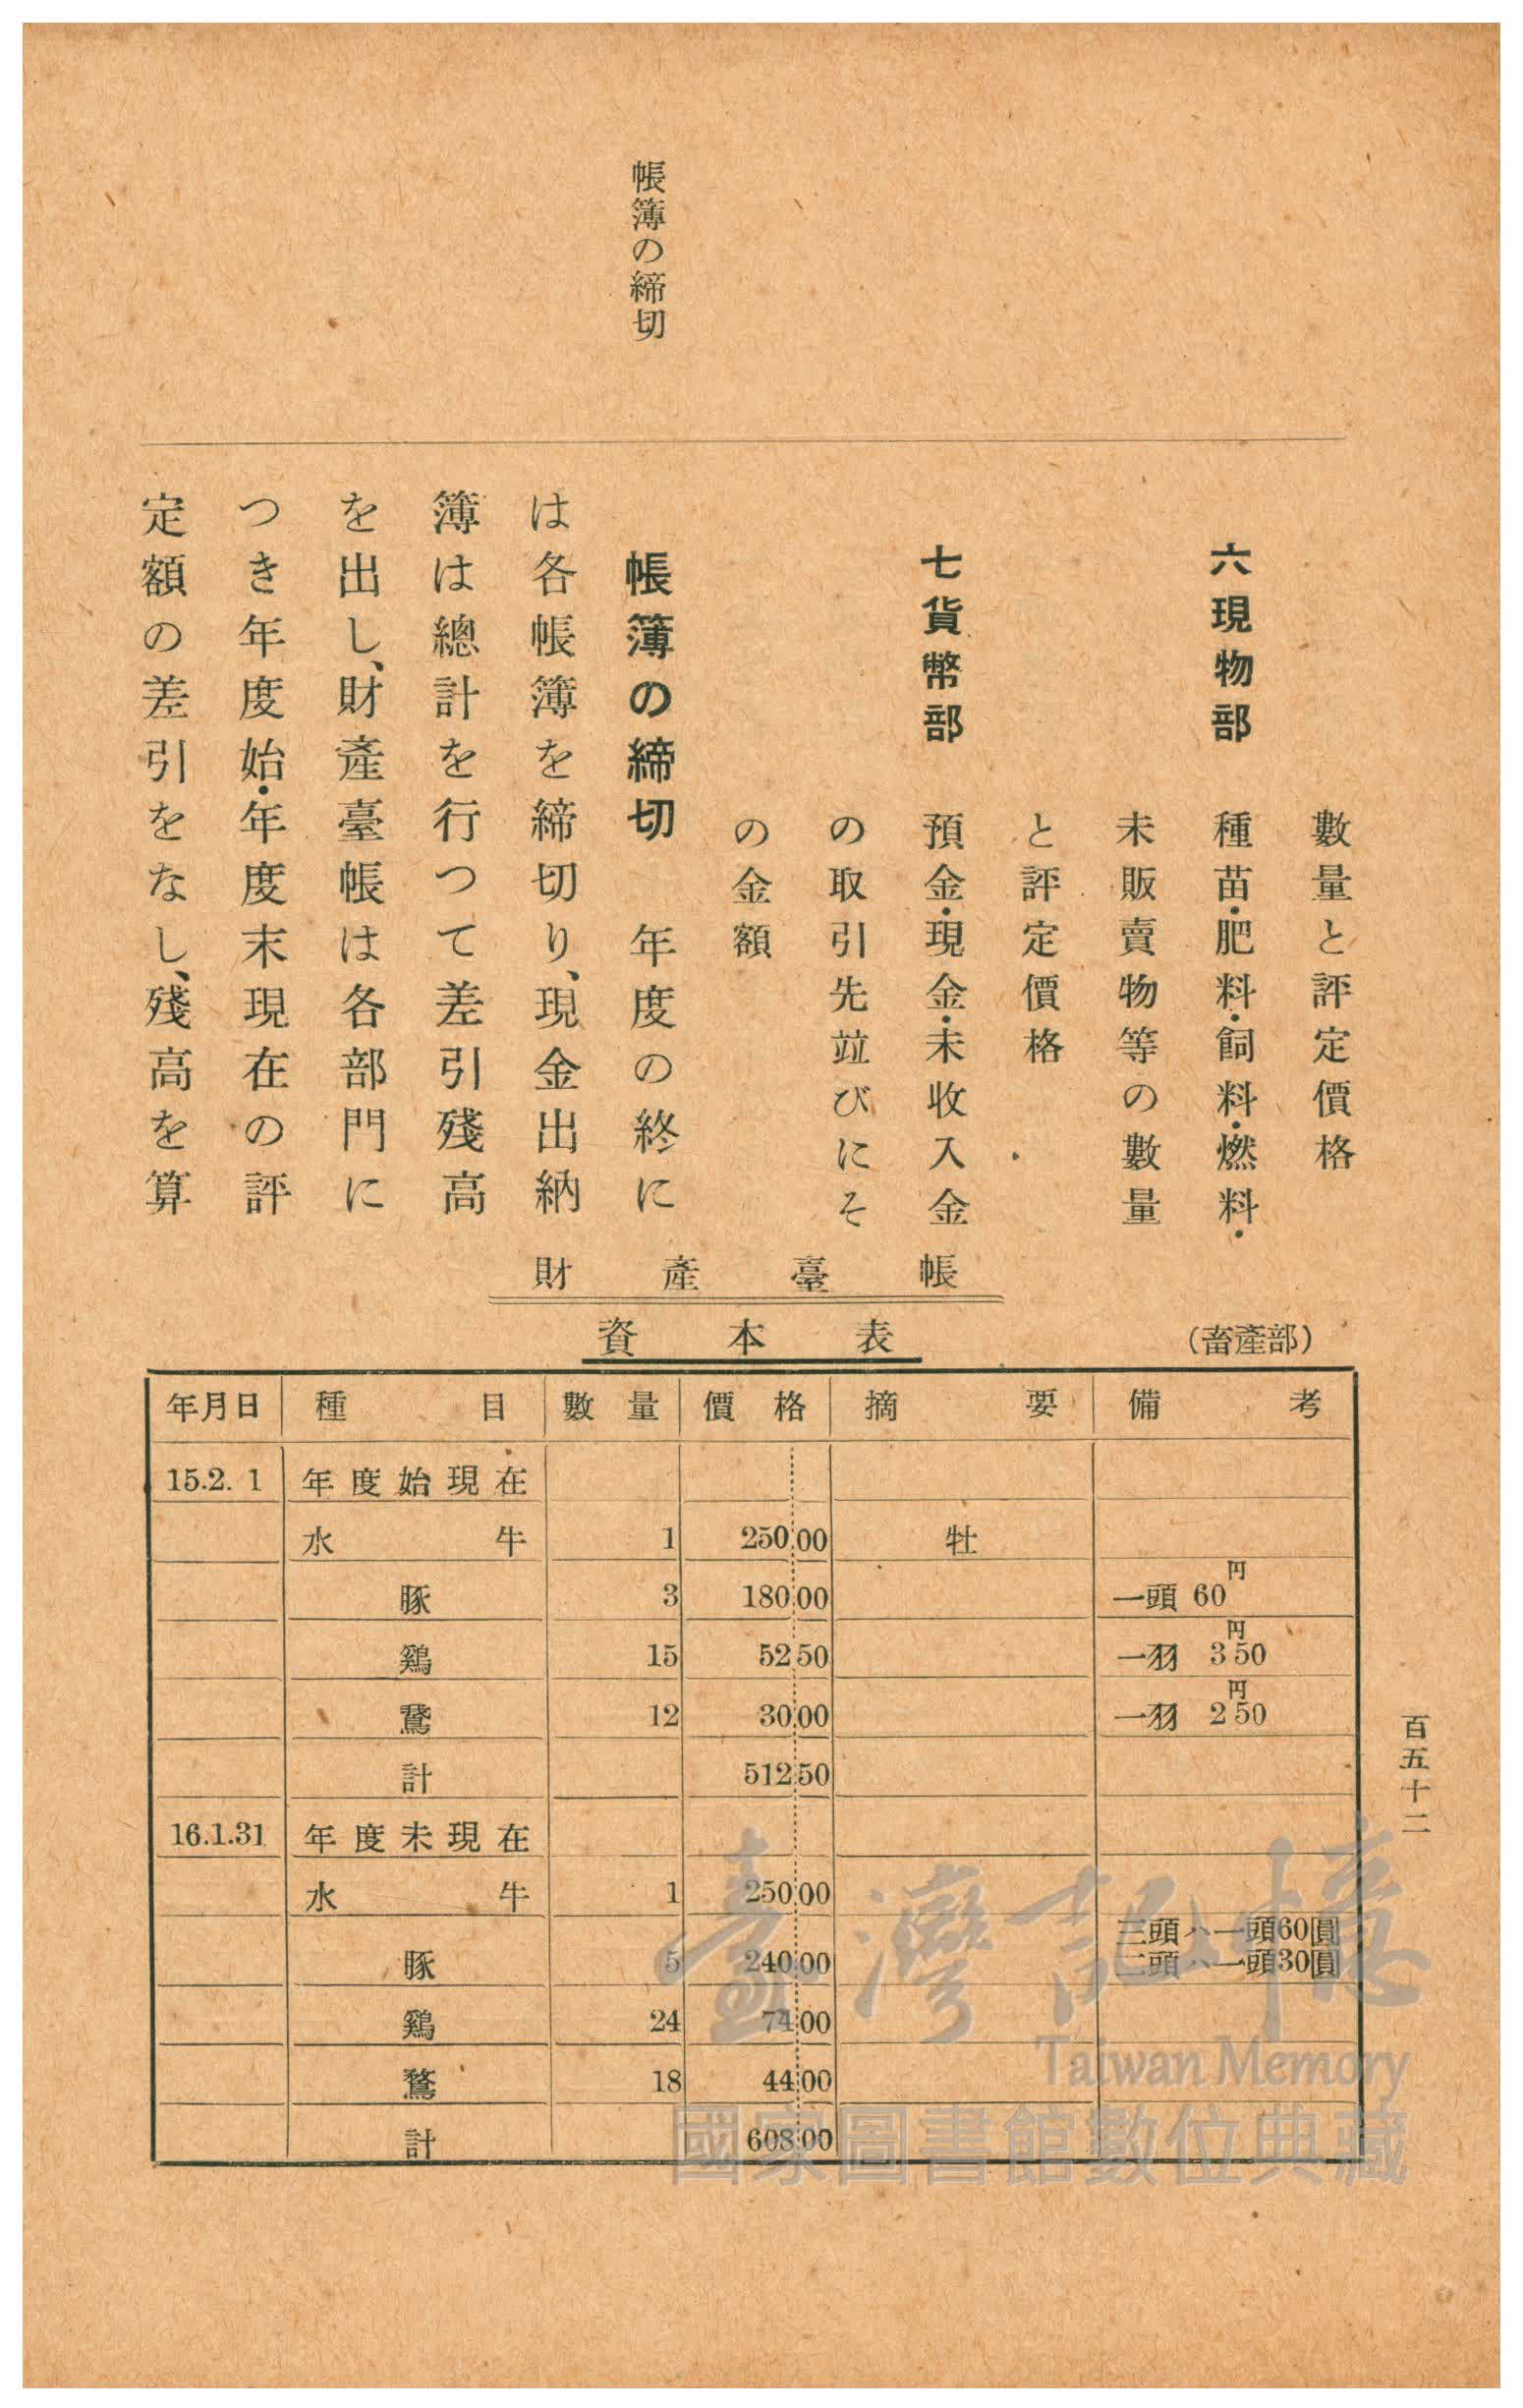 帳簿の締切
數量と評定價格
六現物部　種苗・肥料・飼料・燃料・
未販賣物等の數量
と評定價格
七貨幣部　預金・現金・未收入金
の取引先竝びにそ
の金額
帳簿の締切　年度の終に
は各帳簿を締切り、現金出納
簿は總計を行つて差引殘高
を出し、財產臺帳は各部門に
つき年度始・年度末現在の評
定額の差引をなし、殘高を算
財產臺帳
資本表　（畜產部）
年月日　種目　數量　價格　摘要　備考
15.2.1　年度始現在
水牛　1　250 00　牡
豚　3　180 00　一頭 60円
鷄　15　52 50　一羽 3円50
鵞　12　30 00　一羽 2円50
計　512 50
16.1.31　年度末現在
水牛　1　250 00
豚　5　240 00　三頭ハ一頭60圓
二頭ハ一頭30圓
鷄　24　74 00
鵞　18　44 00
計　608 00
百五十二
臺灣記憶
Taiwan Memory
國家圖書館數位典藏